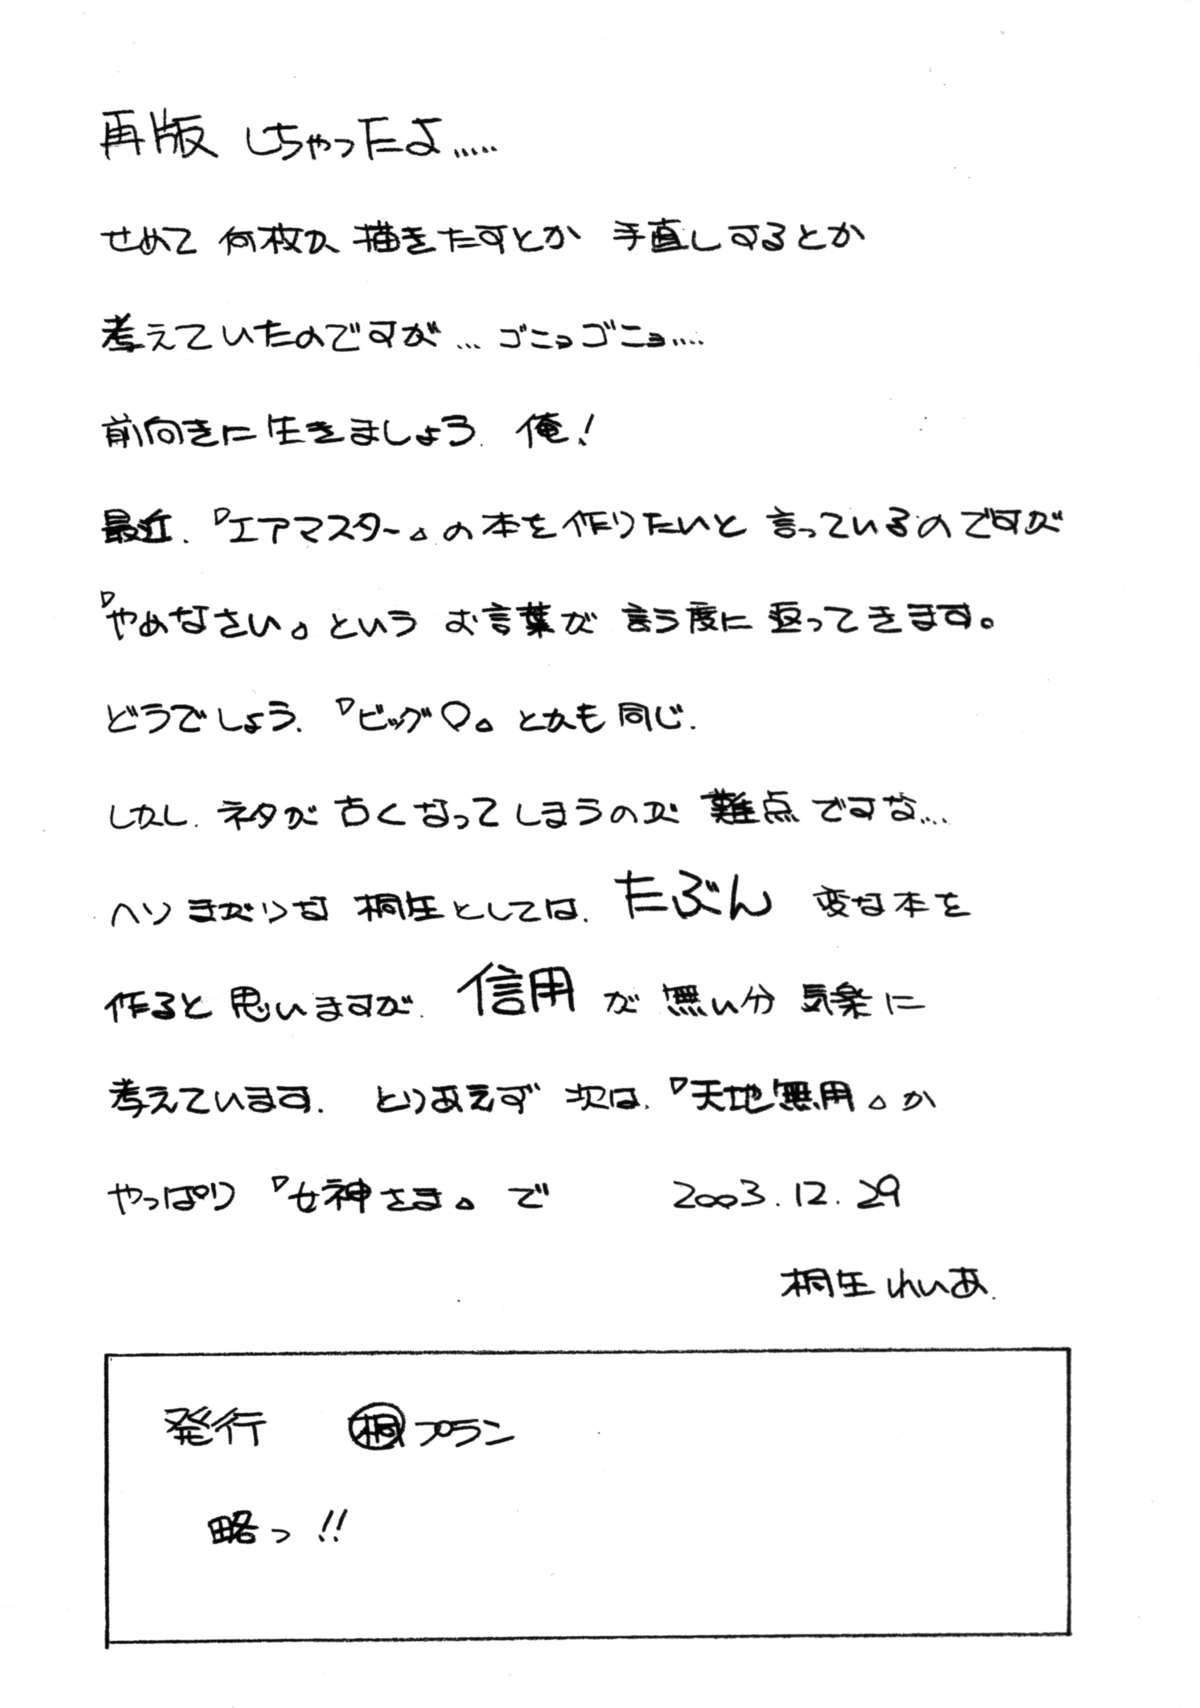 再版 しちゃったよ.....
せめて 何枚か 描きたすとか 手直しするとか
考えていたのですが... ゴニョゴニョ....
前向きに生きましょう. 俺!
最近.『エアマスター』の本を作りたいと 言っているのですが
『やめなさい』という お言葉が 言う度に 返ってきます。
どうでしょう.『ビッグO』とかも同じ.
しかし. ネタが 古くなってしまうのが 難点ですな...
ヘソまがりな 桐生としては. たぶん 変な本を
作ると 思いますが. 信用 が 無い分 気楽に
考えています. とりあえず 次は.『天地無用』か
やっぱり『女神さま』で 2003.12.29
桐生れいあ.
発行 ㊞プラン
略っ!!